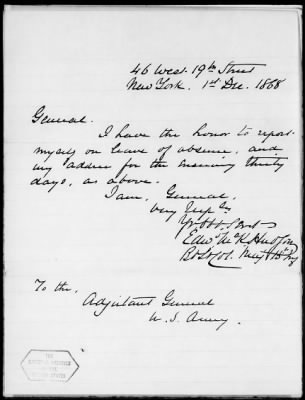 46 West 19th Street
New York. 1st Dec. 1868
General.
I have the honor to report
myself on leave of absence, and
my address for the ensuing thirty
days, as above.
I am, General,
Very Resp'y
Yr. Obt. Servt.
Edwd. McK. Hudson
Bvt Lt Col. Maj.
To the,
Adjutant General
U. S. Army.